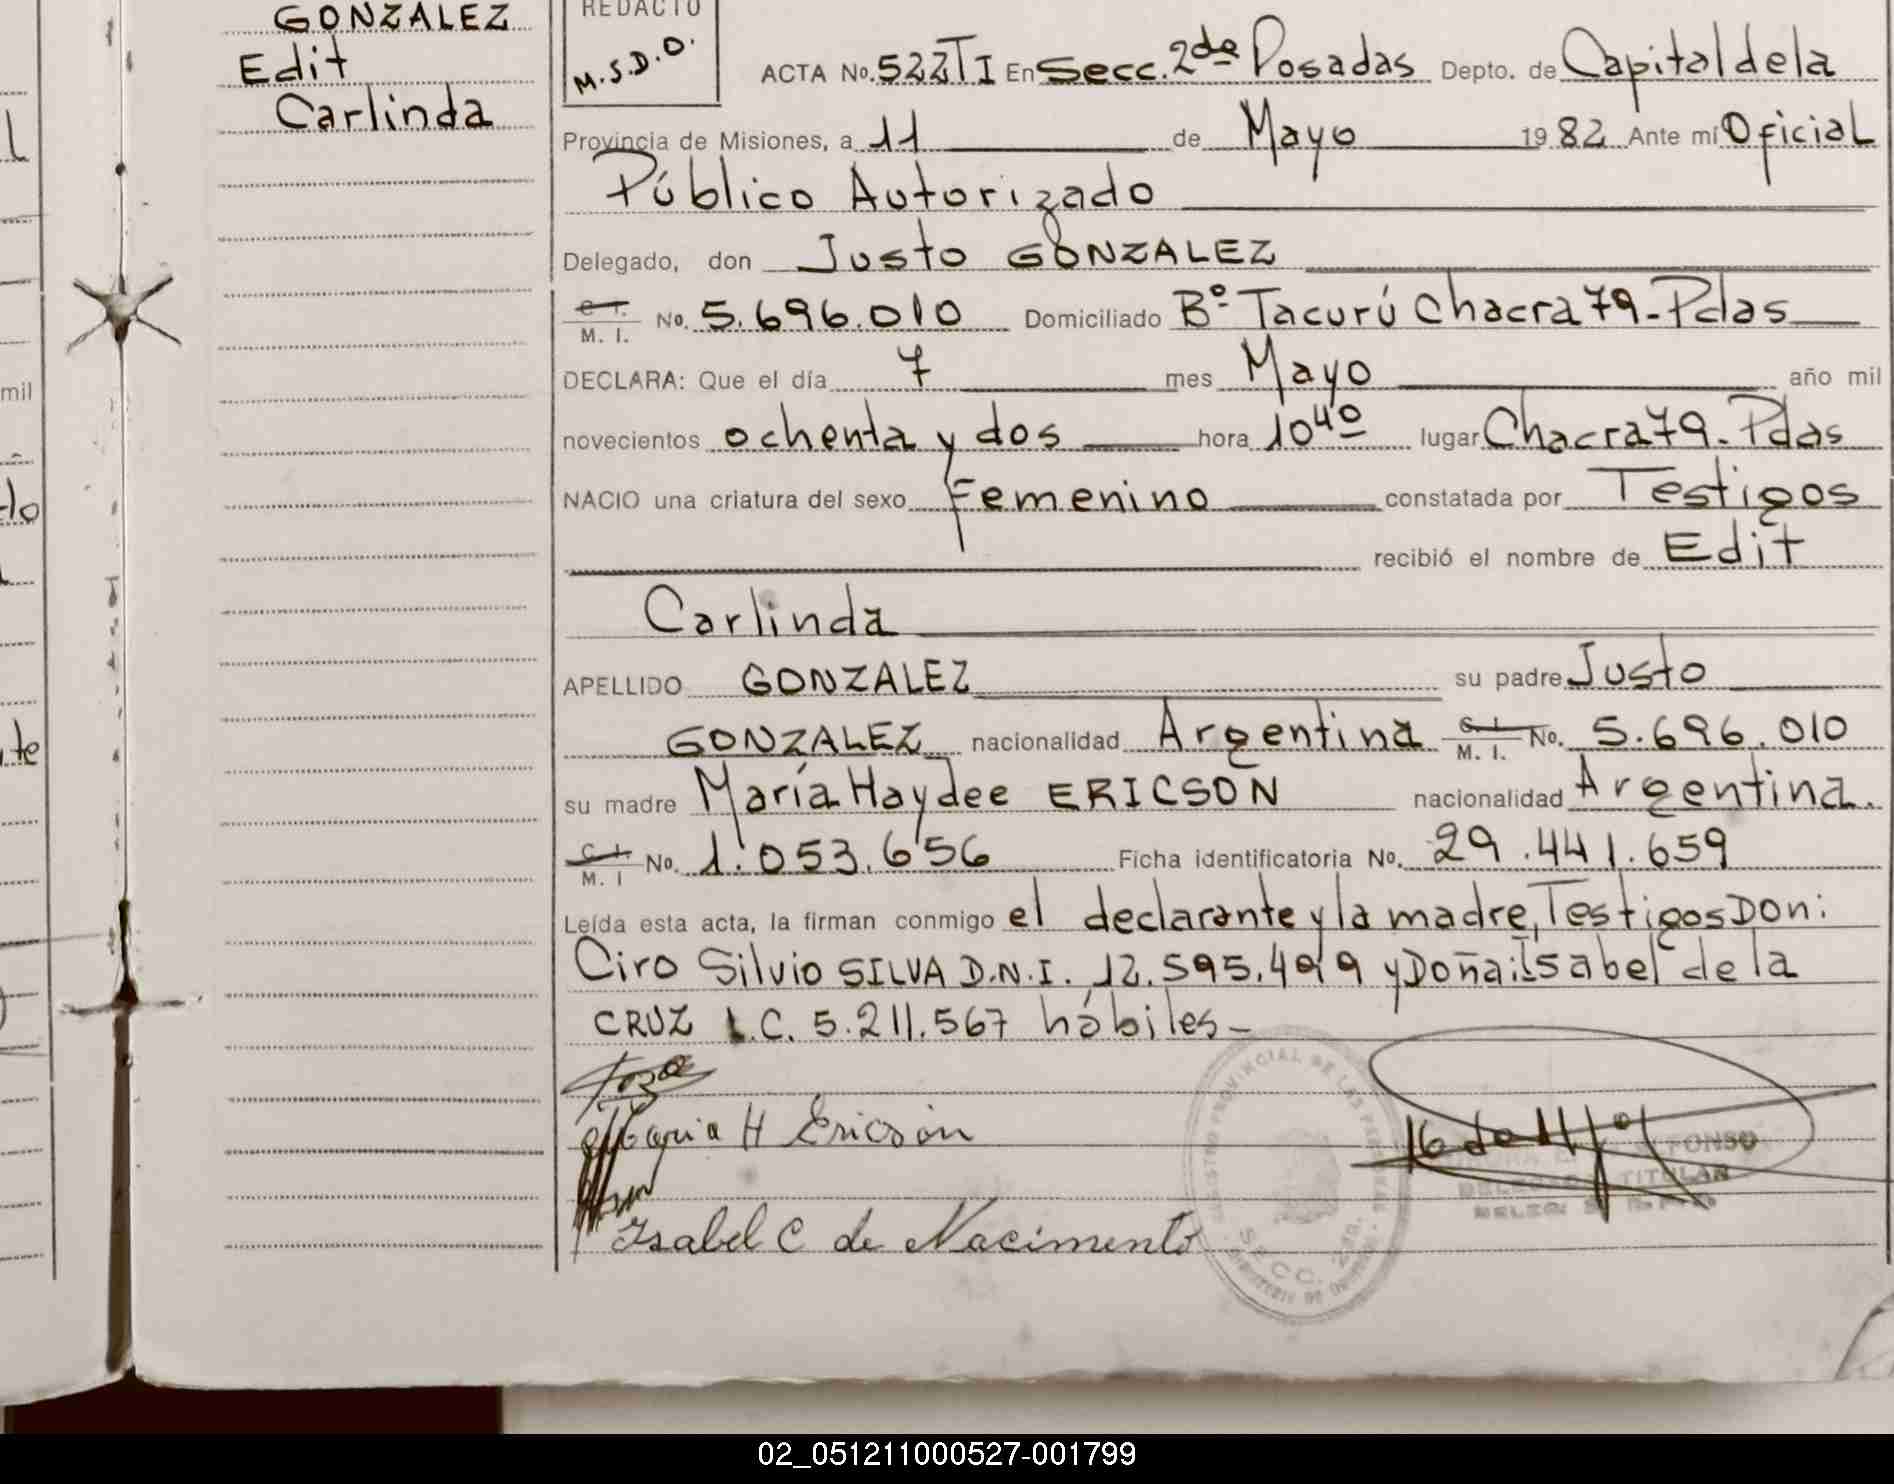 GONZALEZ
Edit
Carlinda
REDACTO
M.S.D.O.
ACTA No. 522TI En Secc. 2da Posadas Depto. de Capital de la
Provincia de Misiones, a 11 de Mayo 1982 Ante mí Oficial
Público Autorizado
Delegado, don Justo GONZALEZ
C. I.
M. I. No. 5.696.010 Domiciliado Bº Tacurú Chacra 79-Pdas
DECLARA: Que el día 7 mes Mayo año mil
novecientos ochenta y dos hora 10 40 lugar Chacra 79-Pdas
NACIO una criatura del sexo Femenino constatada por Testigos
recibió el nombre de Edit
Carlinda
APELLIDO GONZALEZ su padre Justo
GONZALEZ nacionalidad Argentina C. I. M. I. No. 5.696.010
su madre María Haydee ERICSON nacionalidad Argentina.
C. I. M. I No. 1.053.656 Ficha identificatoria No. 29.441.659
Leída esta acta, la firman conmigo el declarante y la madre, Testigos Don:
Ciro Silvio SILVA D.N.I. 12.595.499 y Doña: Isabel de la
CRUZ L.C. 5.211.567 hábiles-
Maria H Ericson
Isabel C de Nacimento
TITULAR
SECC. 2da.
mil
02_051211000527-001799